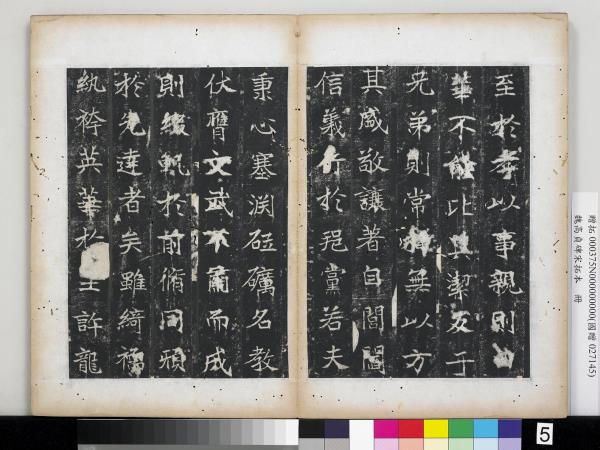 至於孝以事親則
華不能比其潔友于
兄弟則常棣無以方
其盛敬讓著自閨閫
信義行於黨若夫
秉心塞渊砥礪名教
伏膺文武不肅而成
則綴軌於前脩同
於先達者矣雖綺襦
紈袴英華於王許龍
贈拓 000375N000000000(國贈 027145)
魏高貞碑宋拓本 冊
5